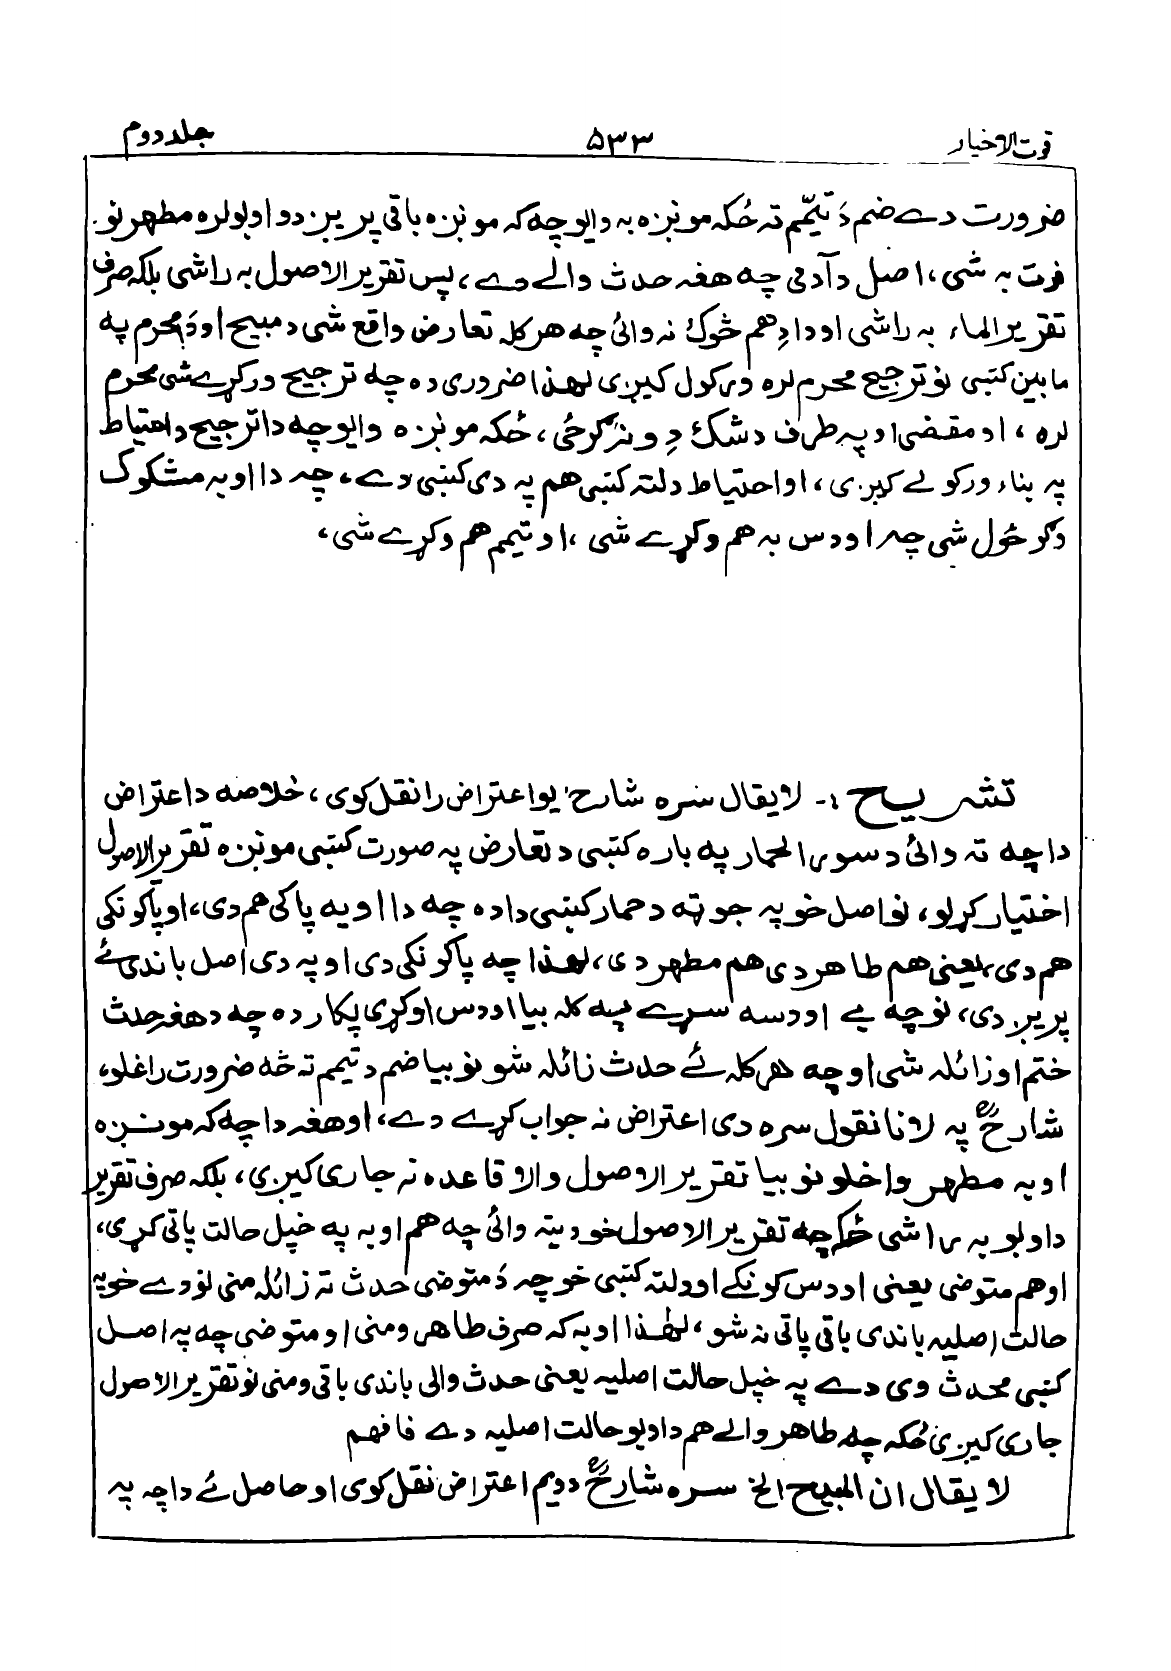 قوت الاخیار ۵۳۳ جلد دوم
ضرورت دے ضم دَ تیمّم ته ځکه مونږه به وایو چه که مونږه باقی پریږدو اوبو لره مطهر نو
فوت به شی، اصل د آدمی چه هغه حدث والے دے، پس تقریر الاصول به راشی بلکه صرف
تقریر الماء به راشی او دا دِ هم څوک نه وائی چه هر کله تعارض واقع شی د مبیح او دَ محرم په
مابین کښی نو ترجیح محرم لره ورکول کیږی لهذا ضروری ده چه ترجیح ورکړے شی محرم
لره، او مقضی او په طرف د شک دِ ونه ګرځی، ځکه مونږه وایو چه دا ترجیح د احتیاط
په بناء ورکولے کیږی، او احتیاط دلته کښی هم په دی کښی دے، چه دا اوبه مشکوک
وګرځول شی چه اودس به هم وکړے شی، او تیمم هم وکړے شی،
تشریح :- لا یقال سره شارحؒ یو اعتراض را نقل کوی، خلاصه د اعتراض
دا چه ته وائی د سوی الحمار په باره کښی د تعارض په صورت کښی مونږه تقریر الاصول
اختیار کړلو، نو اصل خو په جوټه د حمار کښی دا ده چه دا اوبه پاکی هم دی، او پاکونکی
هم دی، یعنی هم طاهر دی هم مطهر دی، لهذا چه پاکونکی دی او په دی اصل باندی ئے
پریږدی، نو چه بے اودسه سړے په کله بیا اودس اوکړی پکار ده چه د هغه حدث
ختم او زائله شی او چه هر کله ئے حدث زائله شو نو بیا ضم د تیمم ته څه ضرورت راغلو،
شارحؒ په لانا نقول سره دی اعتراض نه جواب کړے دے، او هغه دا چه که مونږه
اوبه مطهر واخلو نو بیا تقریر الاصول والا قاعده نه جاری کیږی، بلکه صرف تقریر
د اوبو به راشی ځکه چه تقریر الاصول خو دیته وائی چه هم اوبه په خپل حالت پاتی کړی،
او هم متوضی یعنی اودس کونکے او دلته کښی خو چه دَ متوضی حدث ته زائله منی نو دے خو په
حالت اصلیه باندی باقی پاتی نه شو، لهٰذا اوبه که صرف طاهر ومنی او متوضی چه په اصل
کښی محدث وی دے په خپل حالت اصلیه یعنی حدث والی باندی باقی ومنی نو تقریر الاصول
جاری کیږی ځکه چه طاهر والے هم د اوبو حالت اصلیه دے فافهم
لا یقال ان المبیح الخ سره شارحؒ دویم اعتراض نقل کوی او حاصل ئے دا چه په